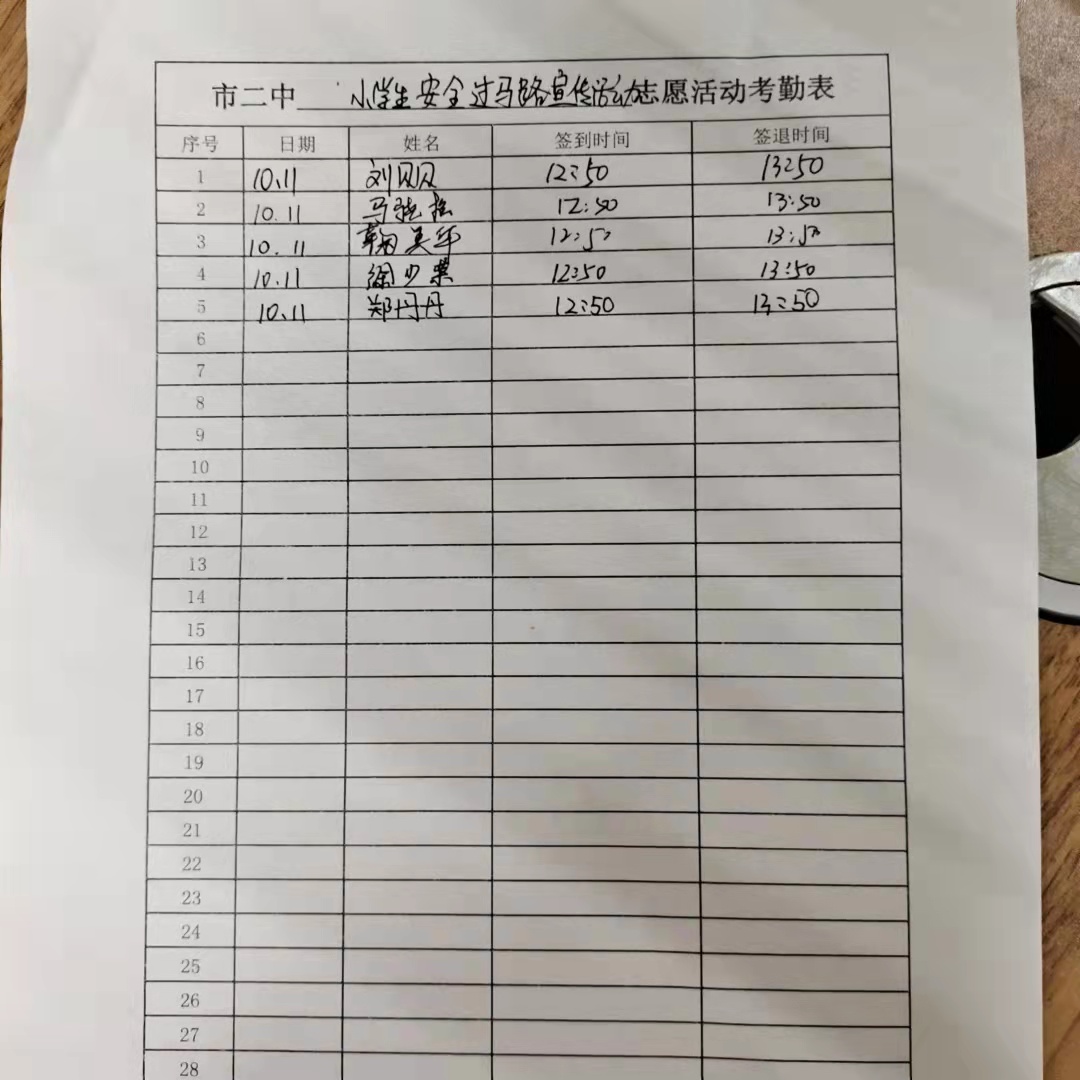 市二中 小学生安全过马路宣传活动志愿活动考勤表
序号 日期 姓名 签到时间 签退时间
1 10.11 刘贝贝 12:50 13:50
2 10.11 马 12:50 13:50
3 10.11 鞠美华 12:50 13:50
4 10.11 徐少 12:50 13:50
5 10.11 郑丹丹 12:50 13:50
6
7
8
9
10
11
12
13
14
15
16
17
18
19
20
21
22
23
24
25
26
27
28